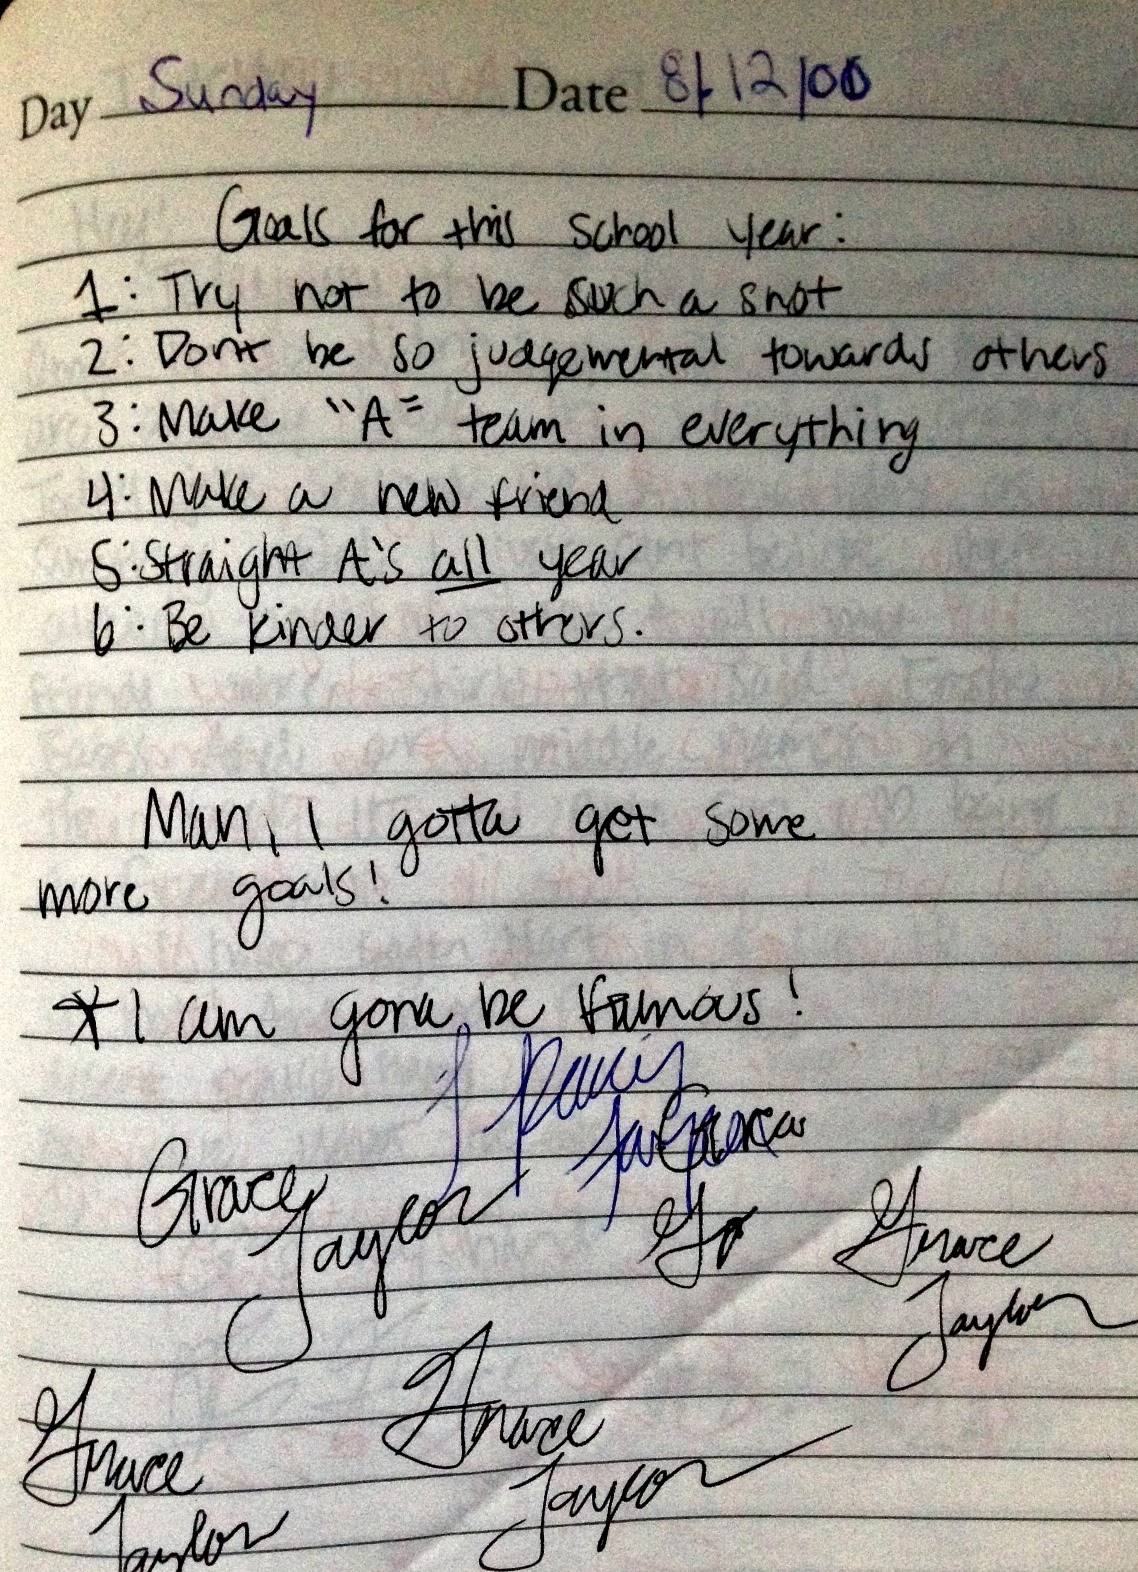 Day Sunday Date 8/12/00
Goals for this school year:
1: Try not to be such a snot
2: Dont be so judgemental towards others
3: Make "A" team in everything
4: Make a new friend
5: Straight A's all year
6: Be kinder to others.
Man, I gotta get some
more goals!
*I am gona be famous!
Grace
Taylor
Grace
Taylor
Grace
Taylor
Grace
Taylor